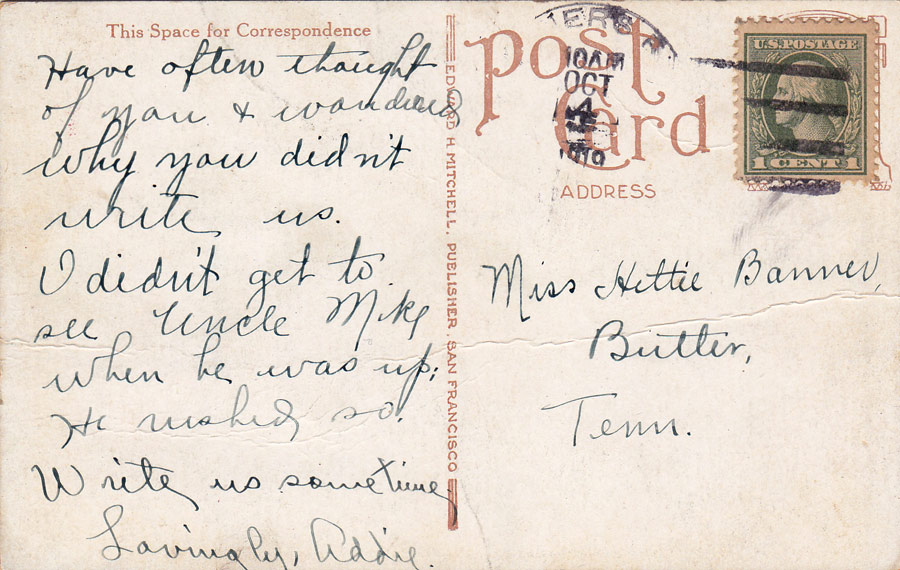 This Space for Correspondence
Have often thought
of you & wondered
why you didn't
write us.
I didn't get to
see Uncle Mike
when he was up.
He rushed so.
Write us sometime
Lovingly, Addie.
EDWARD H. MITCHELL. PUBLISHER. SAN FRANCISCO
Post
Card
ADDRESS
10AM
OCT
4
1919
U.S. POSTAGE
1 CENT 1
Miss Hettie Banner,
Butler,
Tenn.